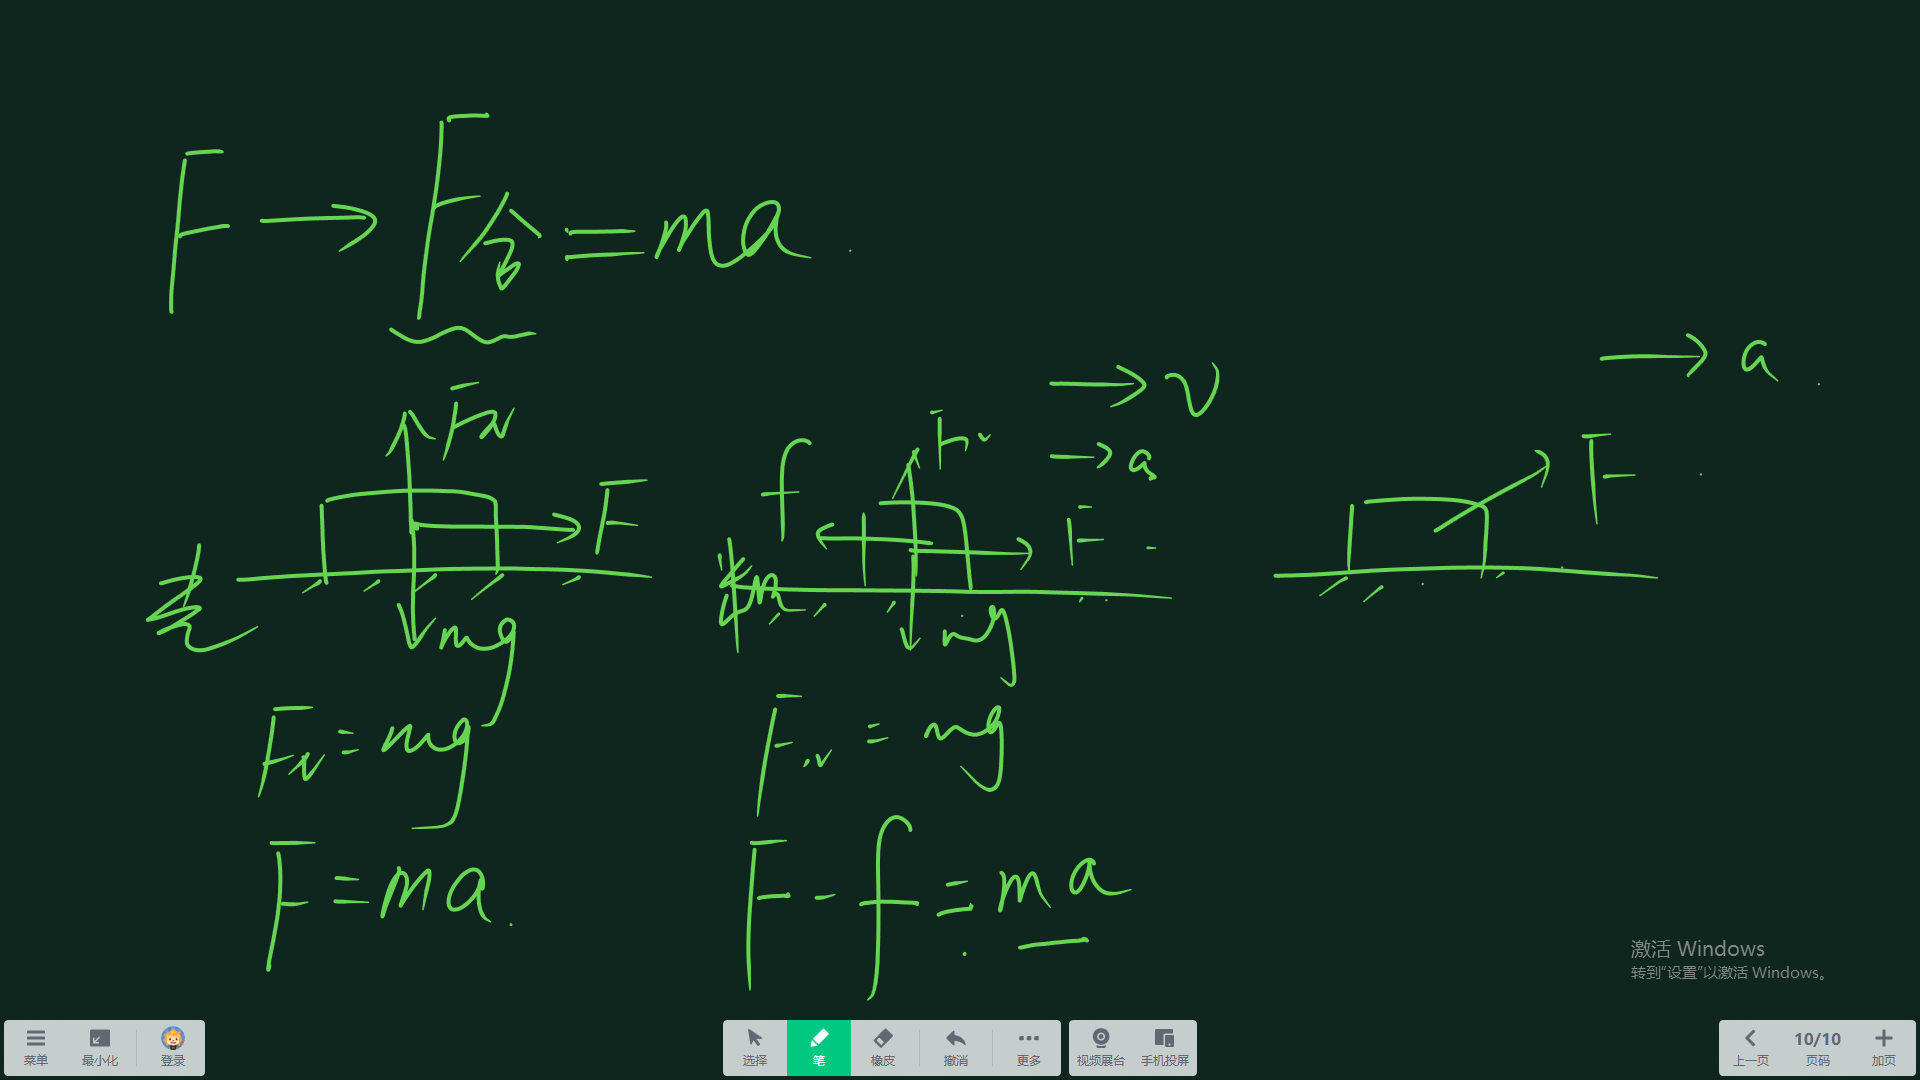 F → F合 = ma
→ v
→ a
→ a
FN
F
mg
光
f
FN
F
mg
粗
F
FN = mg
F = ma
FN = mg
F - f = ma
激活 Windows
转到“设置”以激活 Windows。
菜单
最小化
登录
选择
笔
橡皮
撤消
更多
视频展台
手机投屏
上一页
10/10
页码
加页